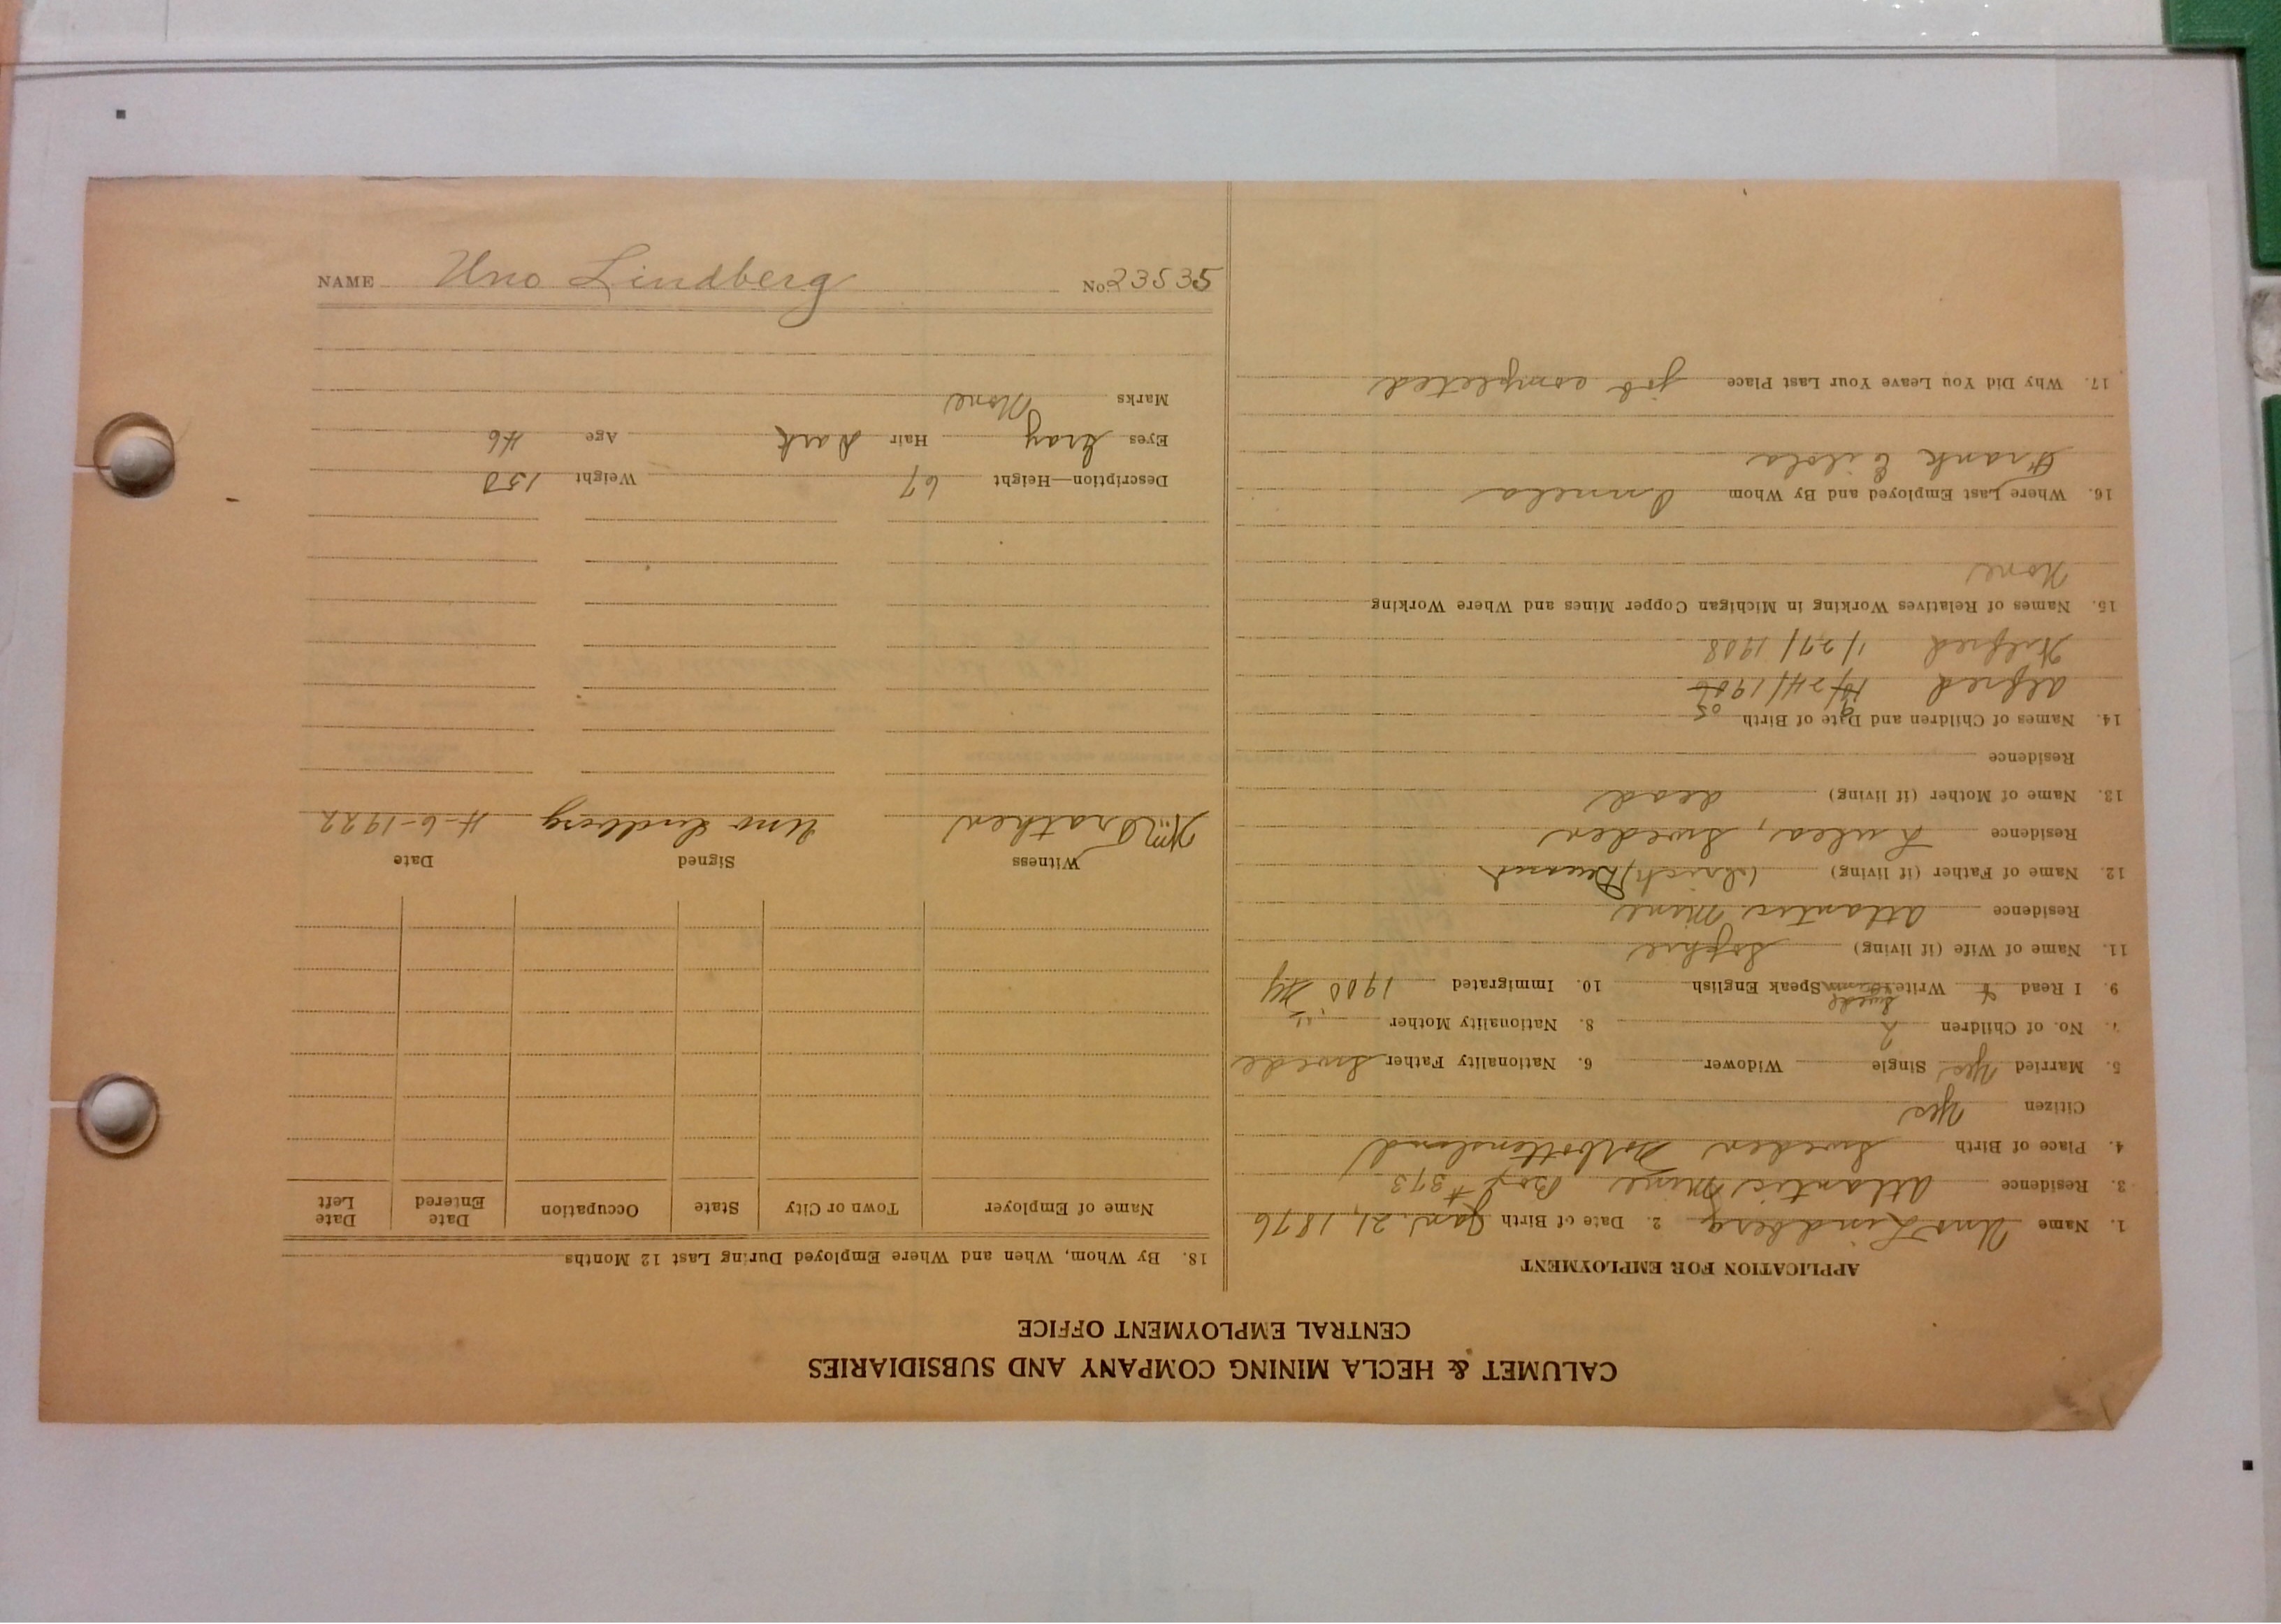 CALUMET & HECLA MINING COMPANY AND SUBSIDIARIES
CENTRAL EMPLOYMENT OFFICE
APPLICATION FOR EMPLOYMENT
1. Name Uno Lindberg 2. Date of Birth Jan. 21, 1876
3. Residence Atlantic Mine Box #373
4. Place of Birth Sweden
Citizen Yes
5. Married Yes Single Widower 6. Nationality Father Swede
7. No. of Children 2 8. Nationality Mother "
9. I Read & Write Swede Speak English 10. Immigrated 1900 NY
11. Name of Wife (if living) Sophie
Residence Atlantic Mine
12. Name of Father (if living)
Residence Lulea, Sweden
13. Name of Mother (if living) dead
Residence
14. Names of Children and Date of Birth
9 05
Alfred 10/24/1906
Hilfred 1/27/1908
15. Names of Relatives Working in Michigan Copper Mines and Where Working
None
16. Where Last Employed and By Whom
Frank Eilola
17. Why Did You Leave Your Last Place job completed
18. By Whom, When and Where Employed During Last 12 Months
Name of Employer Town or City State Occupation Date Entered Date Left
Witness Signed Date
Wm Grathen Uno Lindberg 4-6-1922
Description—Height 67 Weight 150
Eyes Gray Hair Dark Age 46
Marks None
NAME Uno Lindberg No. 23535